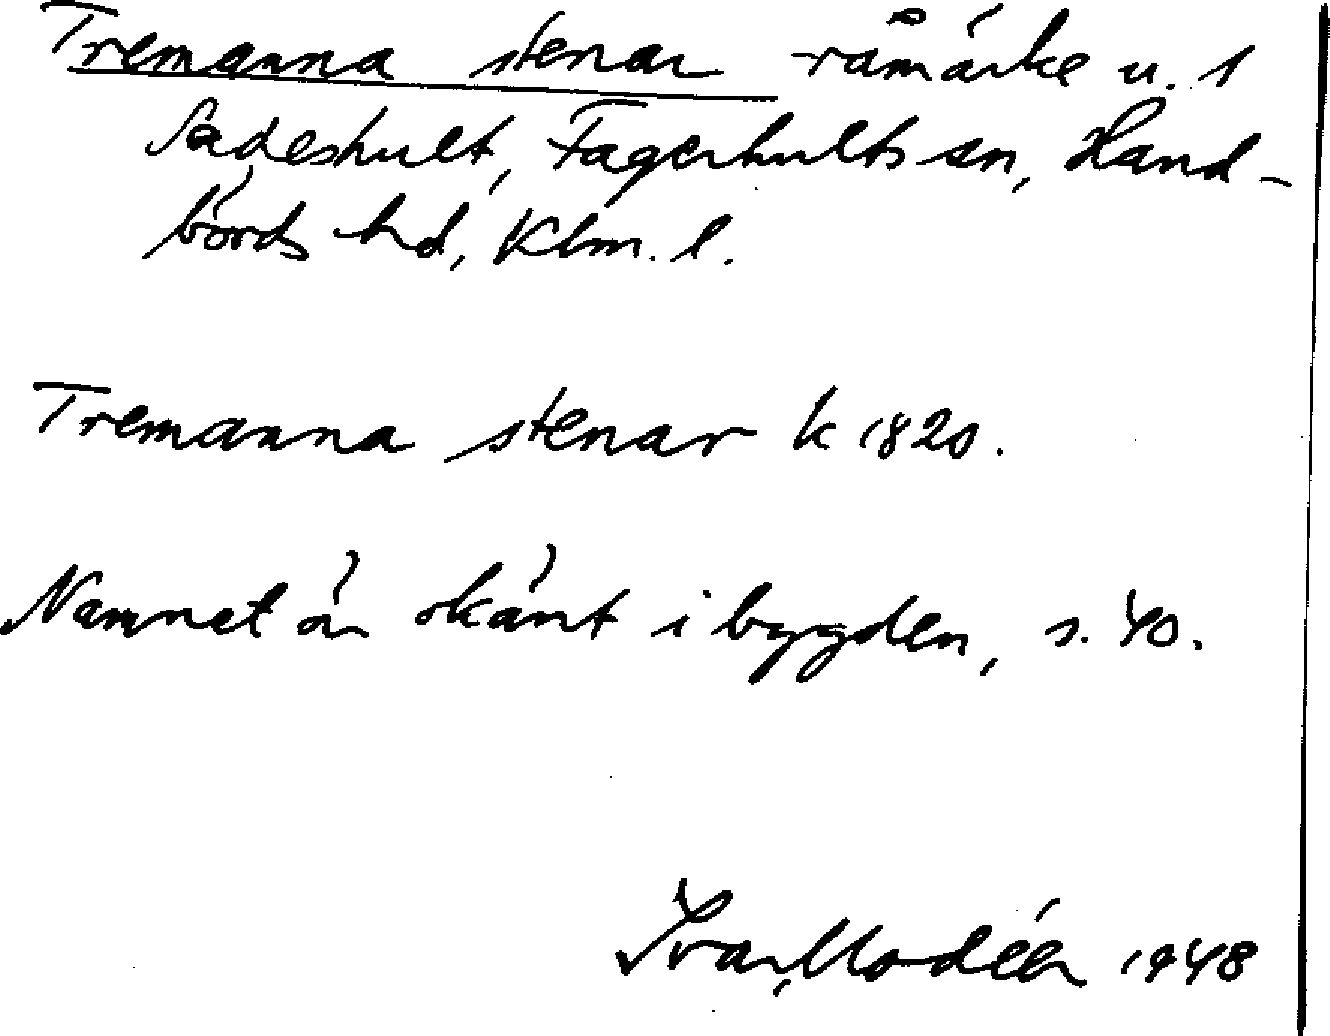 Tremanna stenar råmärke u. 1
Sadeshult, Fagerhults sn, Hand-
börds hd, Klm. l.
Tremanna stenar k 1820.
Namnet är okänt i bygden, s. 40.
Ivar Modéer 1948